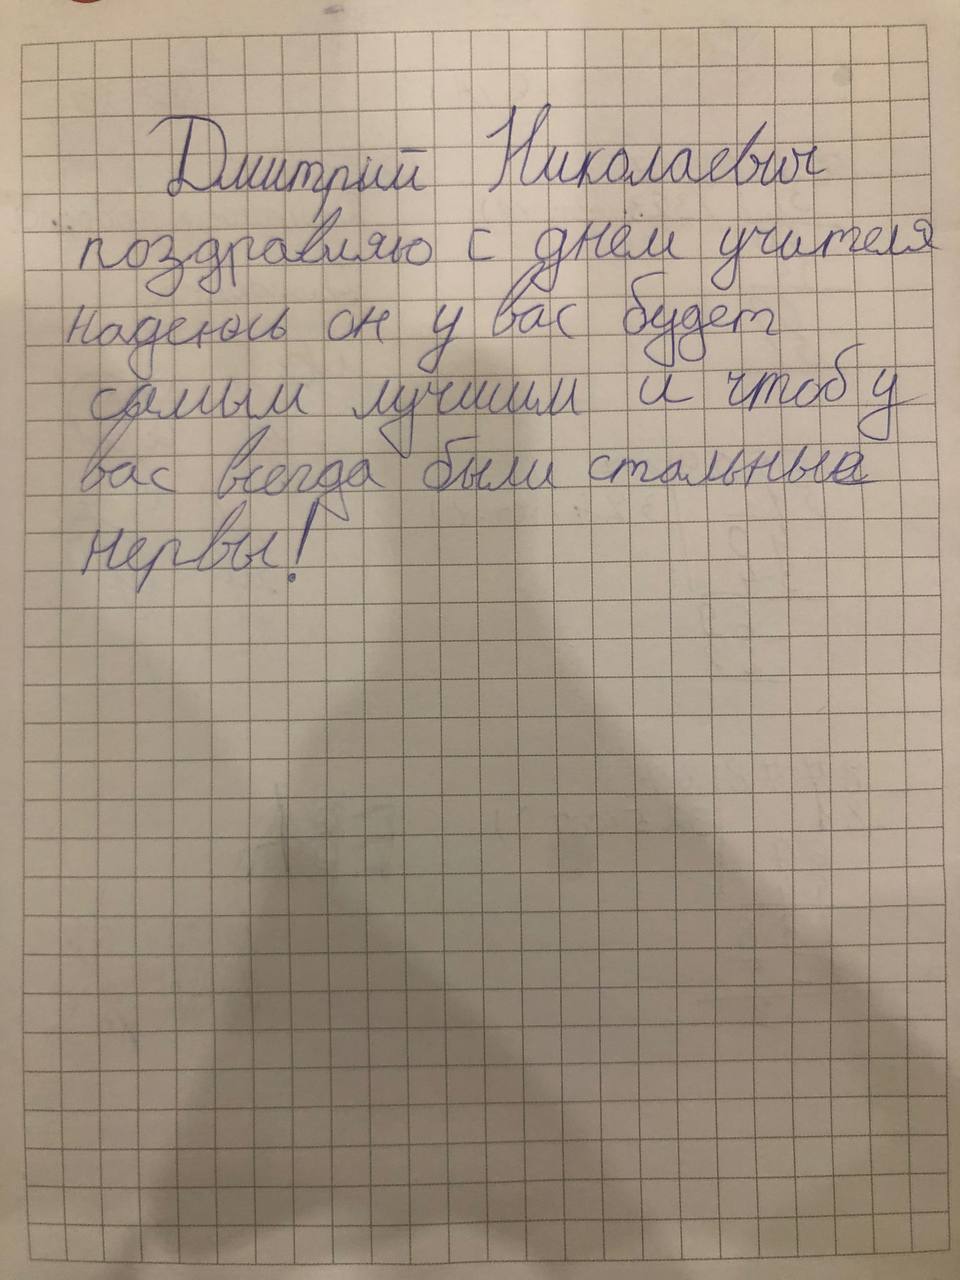 Дмитрий Николаевич
поздравляю с днём учителя
надеюсь он у вас будет
самым лучшим и чтоб у
вас всегда были стальные
нервы!